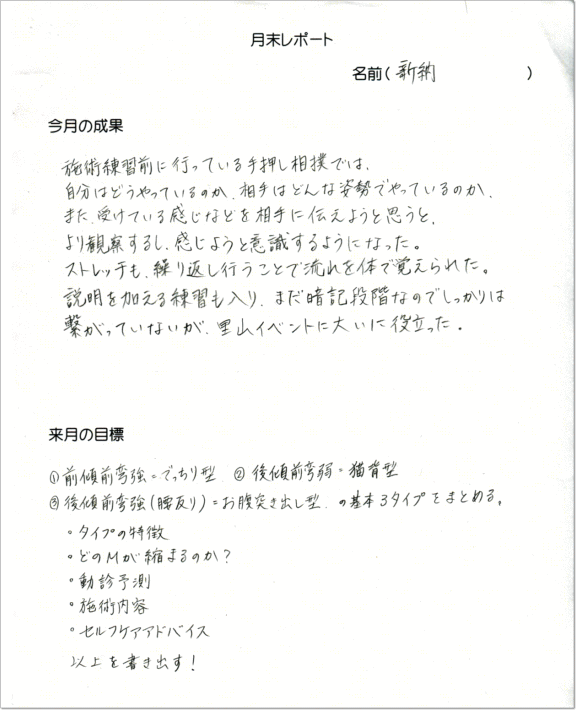 月末レポート
名前( 新納 )
今月の成果
施術練習前に行っている手押し相撲では、
自分はどうやっているのか、相手はどんな姿勢でやっているのか、
また、受けている感じなどを相手に伝えようと思うと、
より観察するし、感じようと意識するようになった。
ストレッチも、繰り返し行うことで流れを体で覚えられた。
説明を加える練習も入り、まだ暗記段階なのでしっかりは
繋がっていないが、里山イベントに大いに役立った。
来月の目標
①前傾前弯強=でっちり型 ②後傾前弯弱=猫背型
③後傾前弯強(腰反り)=お腹突き出し型、の基本3タイプをまとめる。
・タイプの特徴
・どのMが縮まるのか?
・動診予測
・施術内容
・セルフケアアドバイス
以上を書き出す!